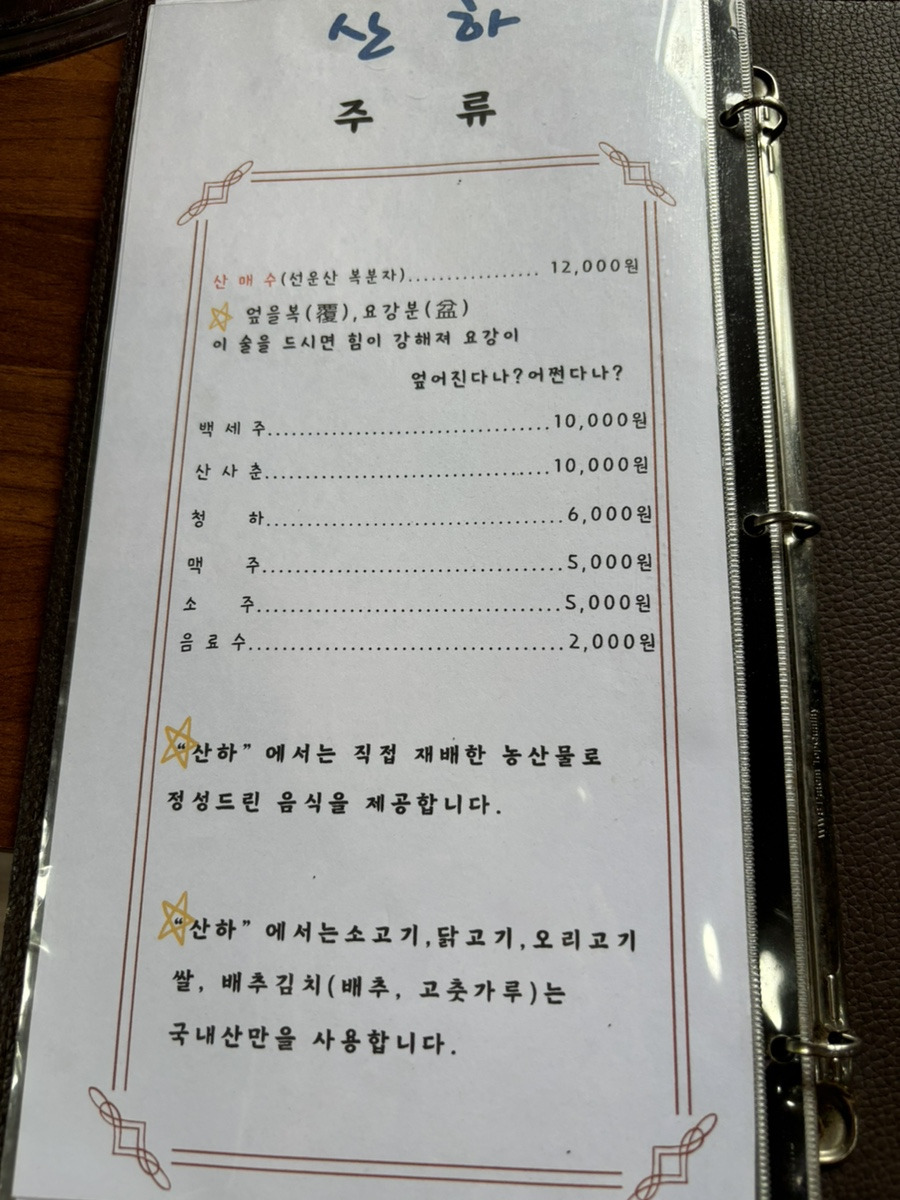 산 하
주 류
산 매 수(선운산 복분자)................. 12,000원
엎을복(覆),요강분(盆)
이 술을 드시면 힘이 강해져 요강이
엎어진다나?어쩐다나?
백 세 주..................................10,000원
산 사 춘..................................10,000원
청 하....................................6,000원
맥 주....................................5,000원
소 주....................................5,000원
음 료 수......................................2,000원
“산하” 에서는 직접 재배한 농산물로
정성드린 음식을 제공합니다.
“산하” 에서는소고기,닭고기,오리고기
쌀, 배추김치(배추, 고춧가루)는
국내산만을 사용합니다.